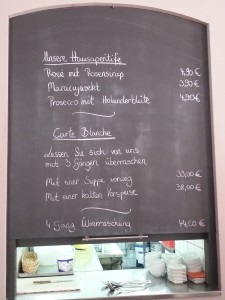 Unsere Hausaperitife
Rosé mit Rosensirup 4,90 €
Maracujasekt 3,90 €
Prosecco mit Holunderblüte 4,90 €
Carte Blanche
Lassen Sie sich von uns
mit 3 Gängen überraschen
Mit einer Suppe vorweg 33,00 €
Mit einer kalten Vorspeise 38,00 €
4 Gang Überraschung 44,00 €